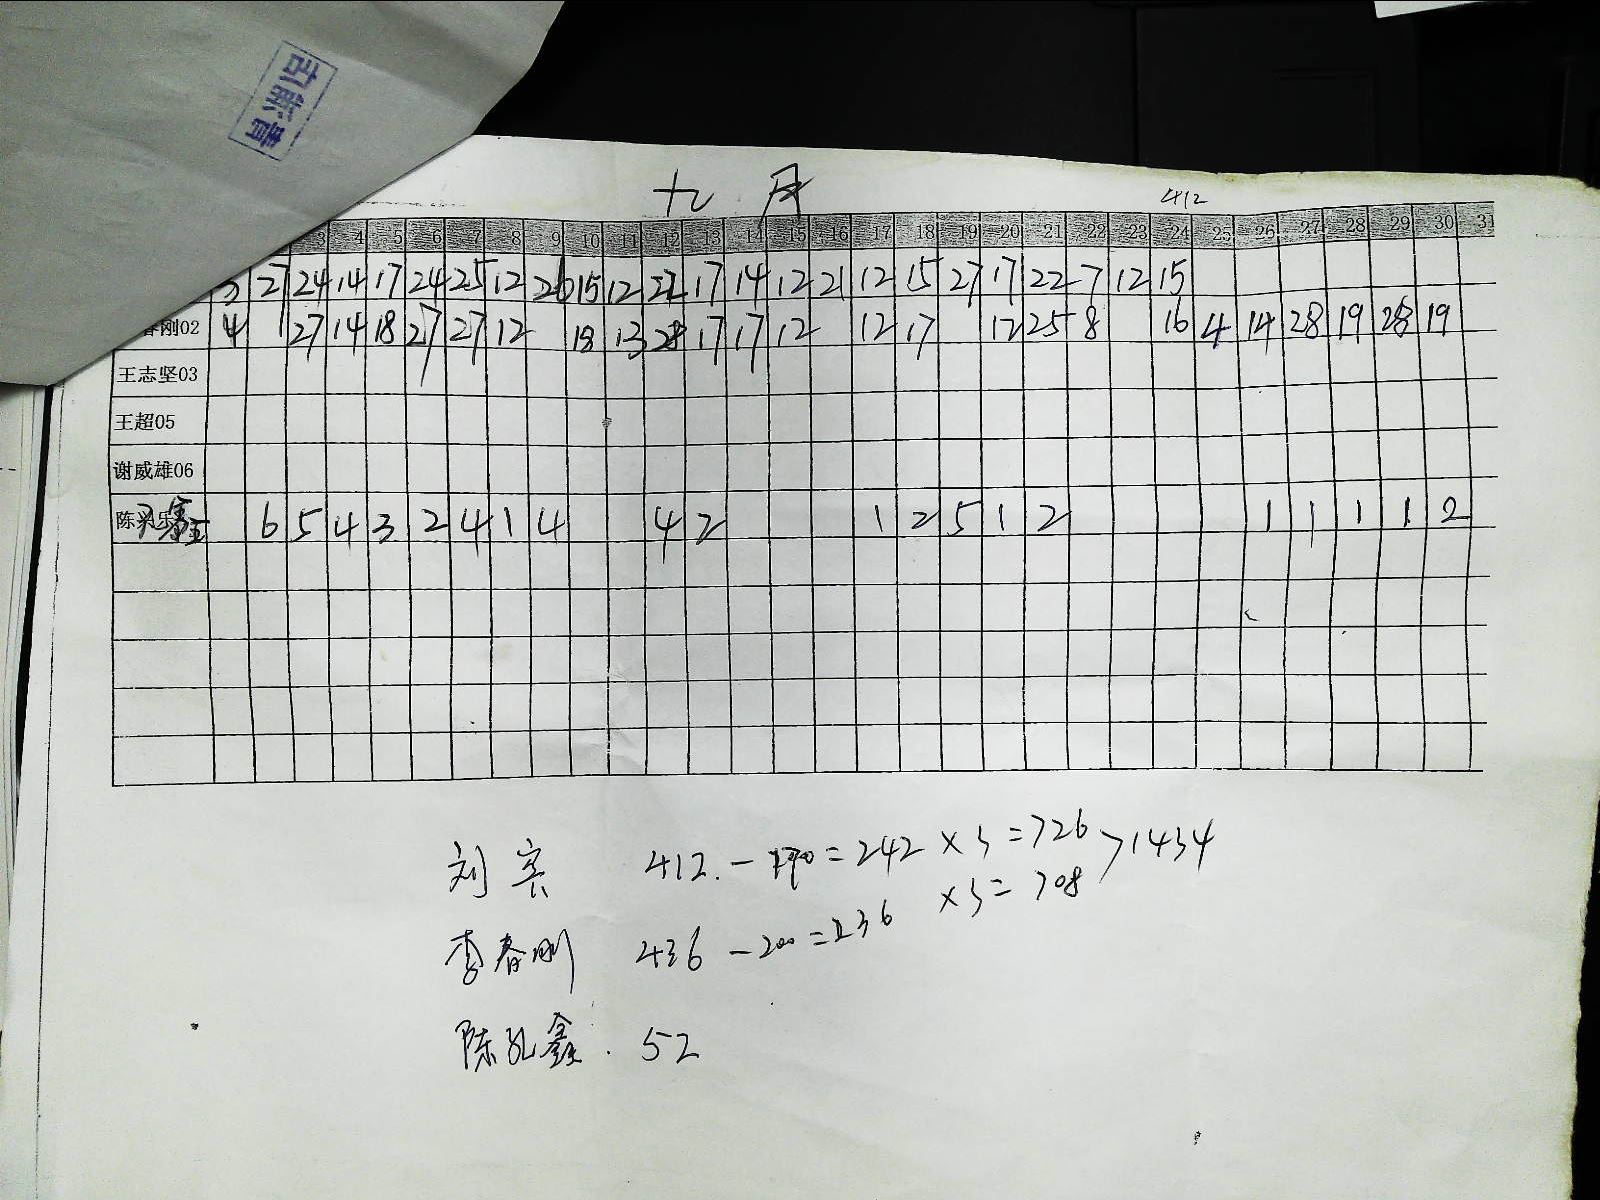 九月
412
3 4 5 6 7 8 9 10 11 12 13 14 15 16 17 18 19 20 21 22 23 24 25 26 27 28 29 30 31
3 27 24 14 17 24 25 12 26 15 12 22 17 14 12 21 12 15 27 17 22 7 12 15
春刚02 4 1 27 14 18 27 27 12 18 13 28 17 17 12 12 17 12 25 8 16 4 14 28 19 28 19
王志坚03
王超05
谢威雄06
陈兴乐 6 5 4 3 2 4 1 4 4 2 1 2 5 1 2 1 1 1 1 2
刘宾 412.-170=242×3=726 >1434
李春刚 436-200=236 ×3=708
陈孔鑫. 52